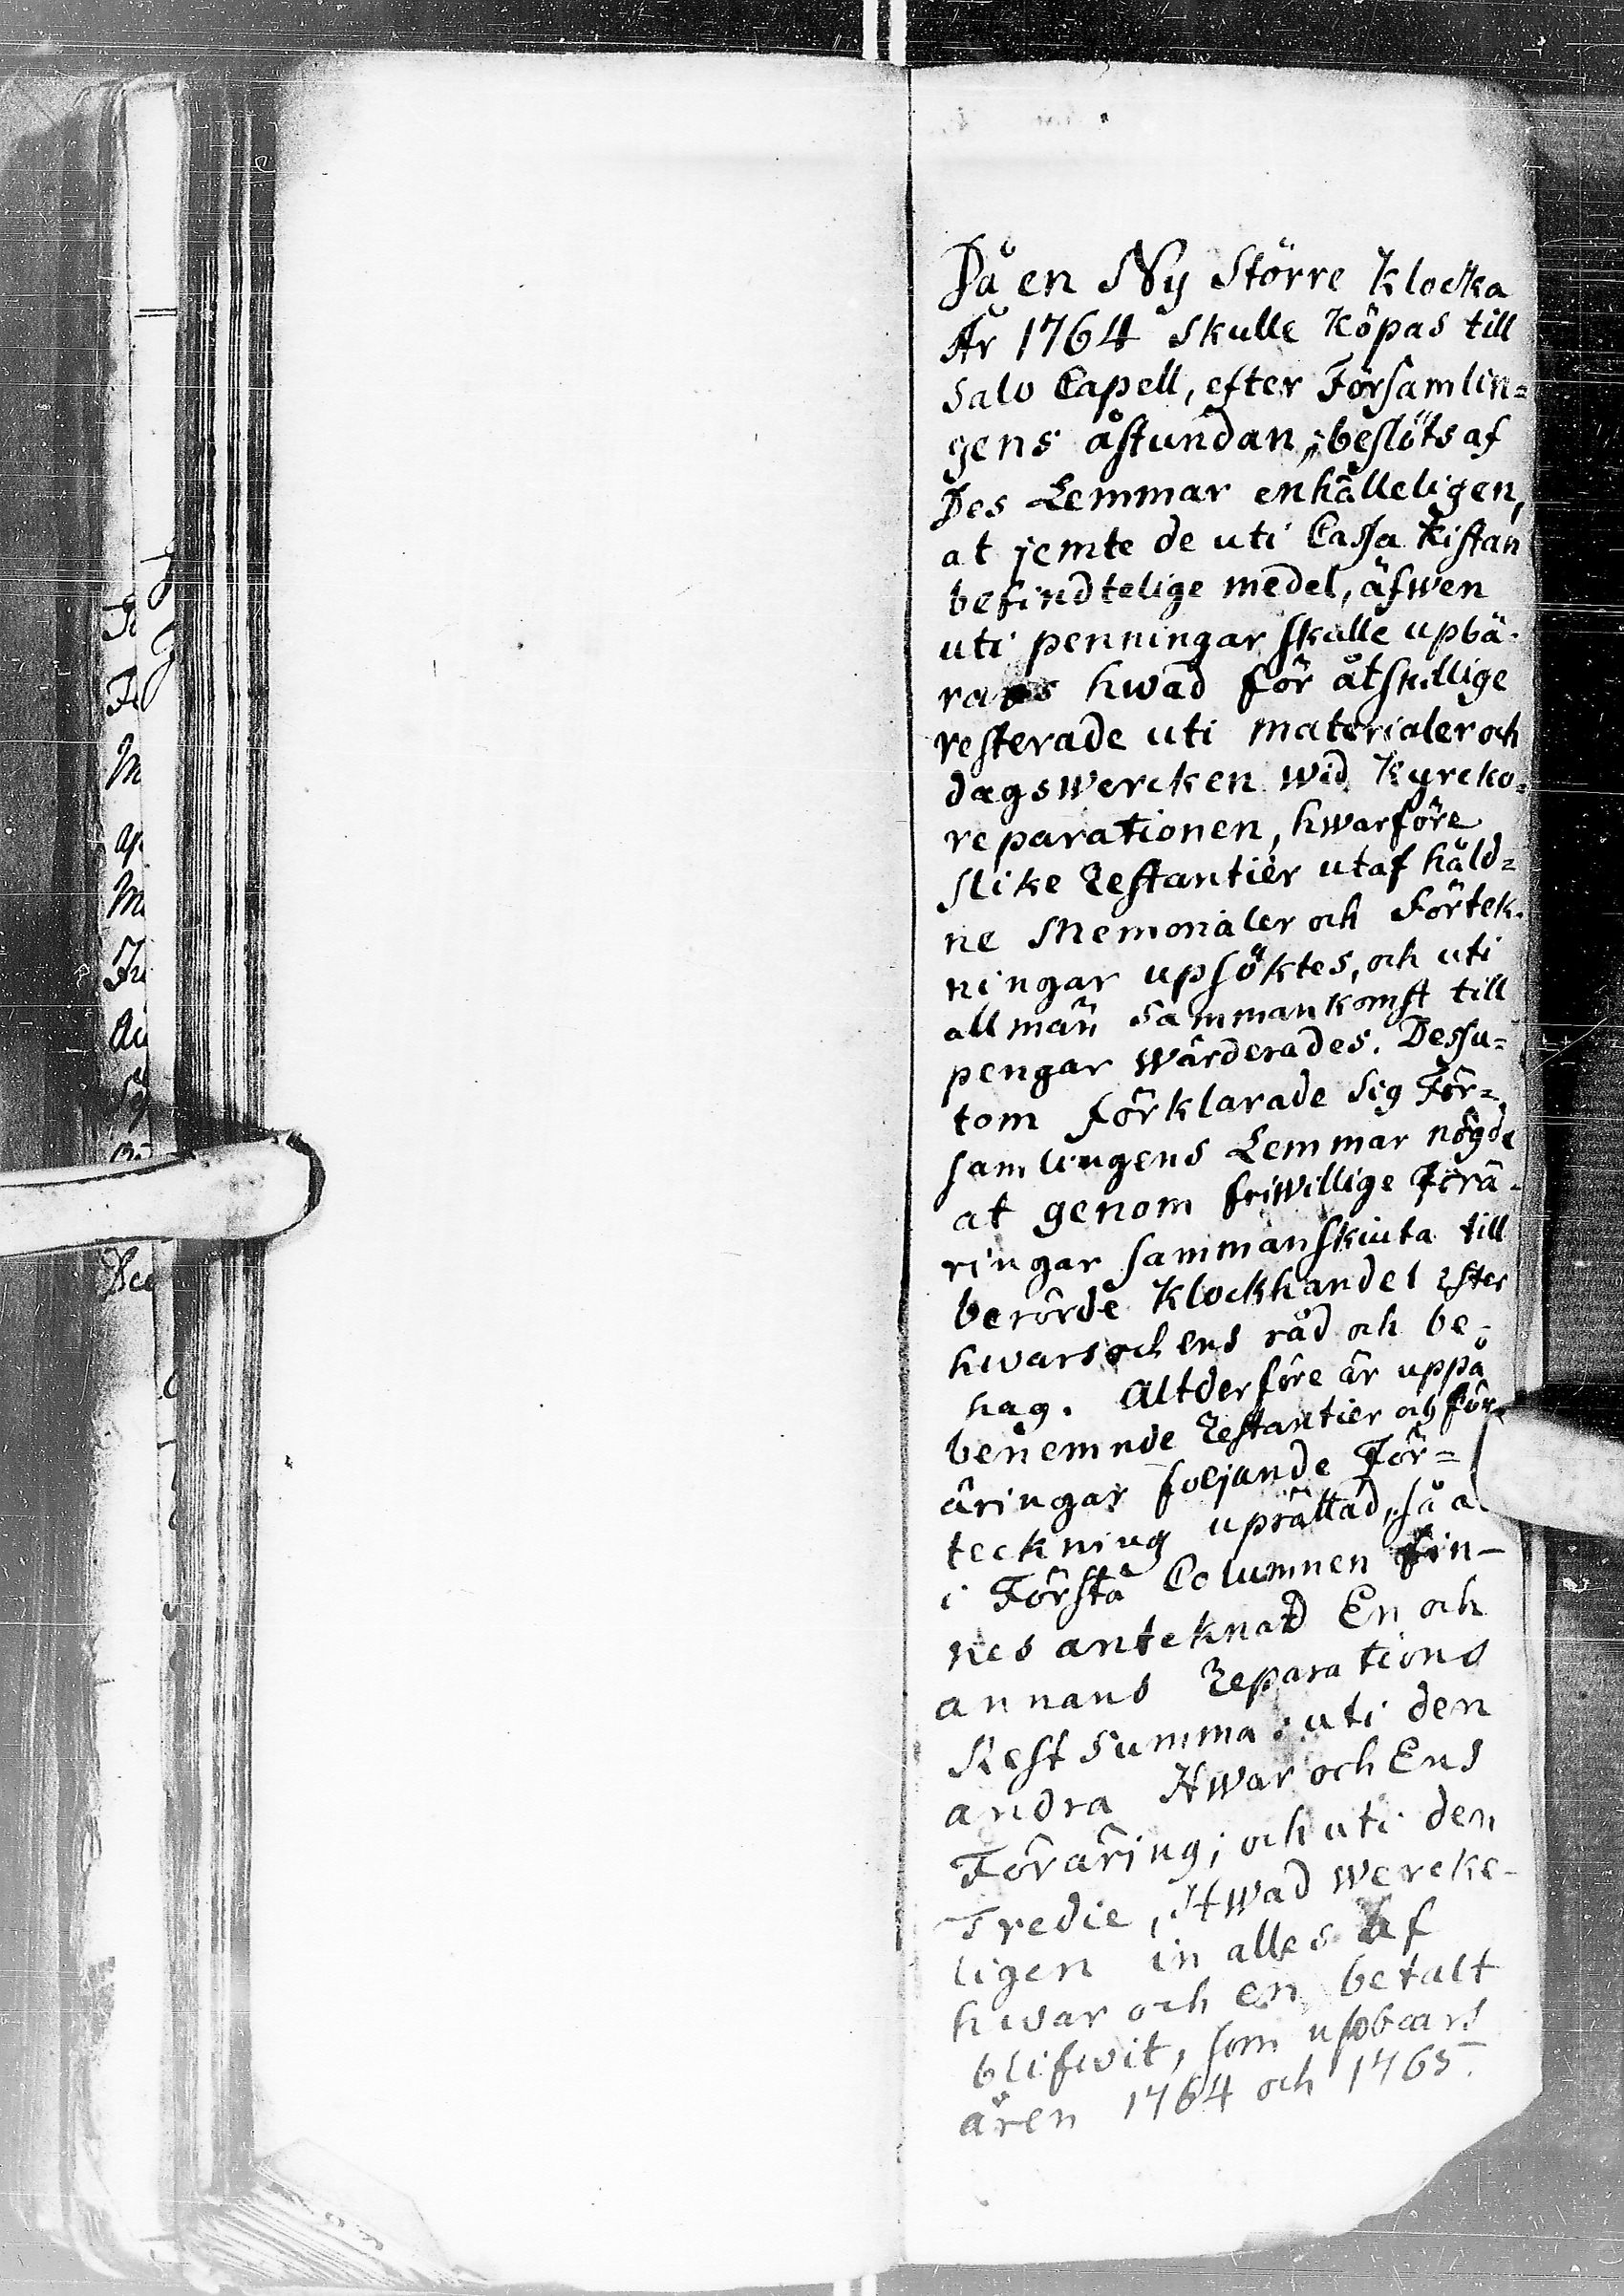 Då en Ny Större Klocka
År 1764 skulle Köpas till
Salo Capell, efter Församlin=
gens åstundan, beslöts af
Des Lemmar enhälleligen,
at jemte de uti Cassa Kistan
befindtelige medel, äfwen
uti penningar skulle upbä-
ras hwad för åtskillige
resterade uti materialer och
dagswercken wid Kyrcko=
reparationen, hwarföre
slike Restantier utaf håld=
ne Memorialer och Förtek-
ningar upsöktes, och uti
allmän sammankomst till
pengar wärderades. Dessu=
tom förklarade sig För=
samlingens Lemmar nögde
at genom friwillige Förä-
ringar sammanskiuta till
berörde Klockhandel efter
hwars och ens råd och be-
hag. Altderföre är uppå
benemnde Restantier och för-
äringar följande För=
teckning uprättad, så a
i Första Columnen fin-
nes anteknad En och
annans Reparations
Rest Summa: uti den
andra Hwar och Ens
Föräring; och uti den
Tredie, Hwad wercke-
ligen in alles af
hwar och en betalt
blifwit, som upbars
åren 1764 och 1765.